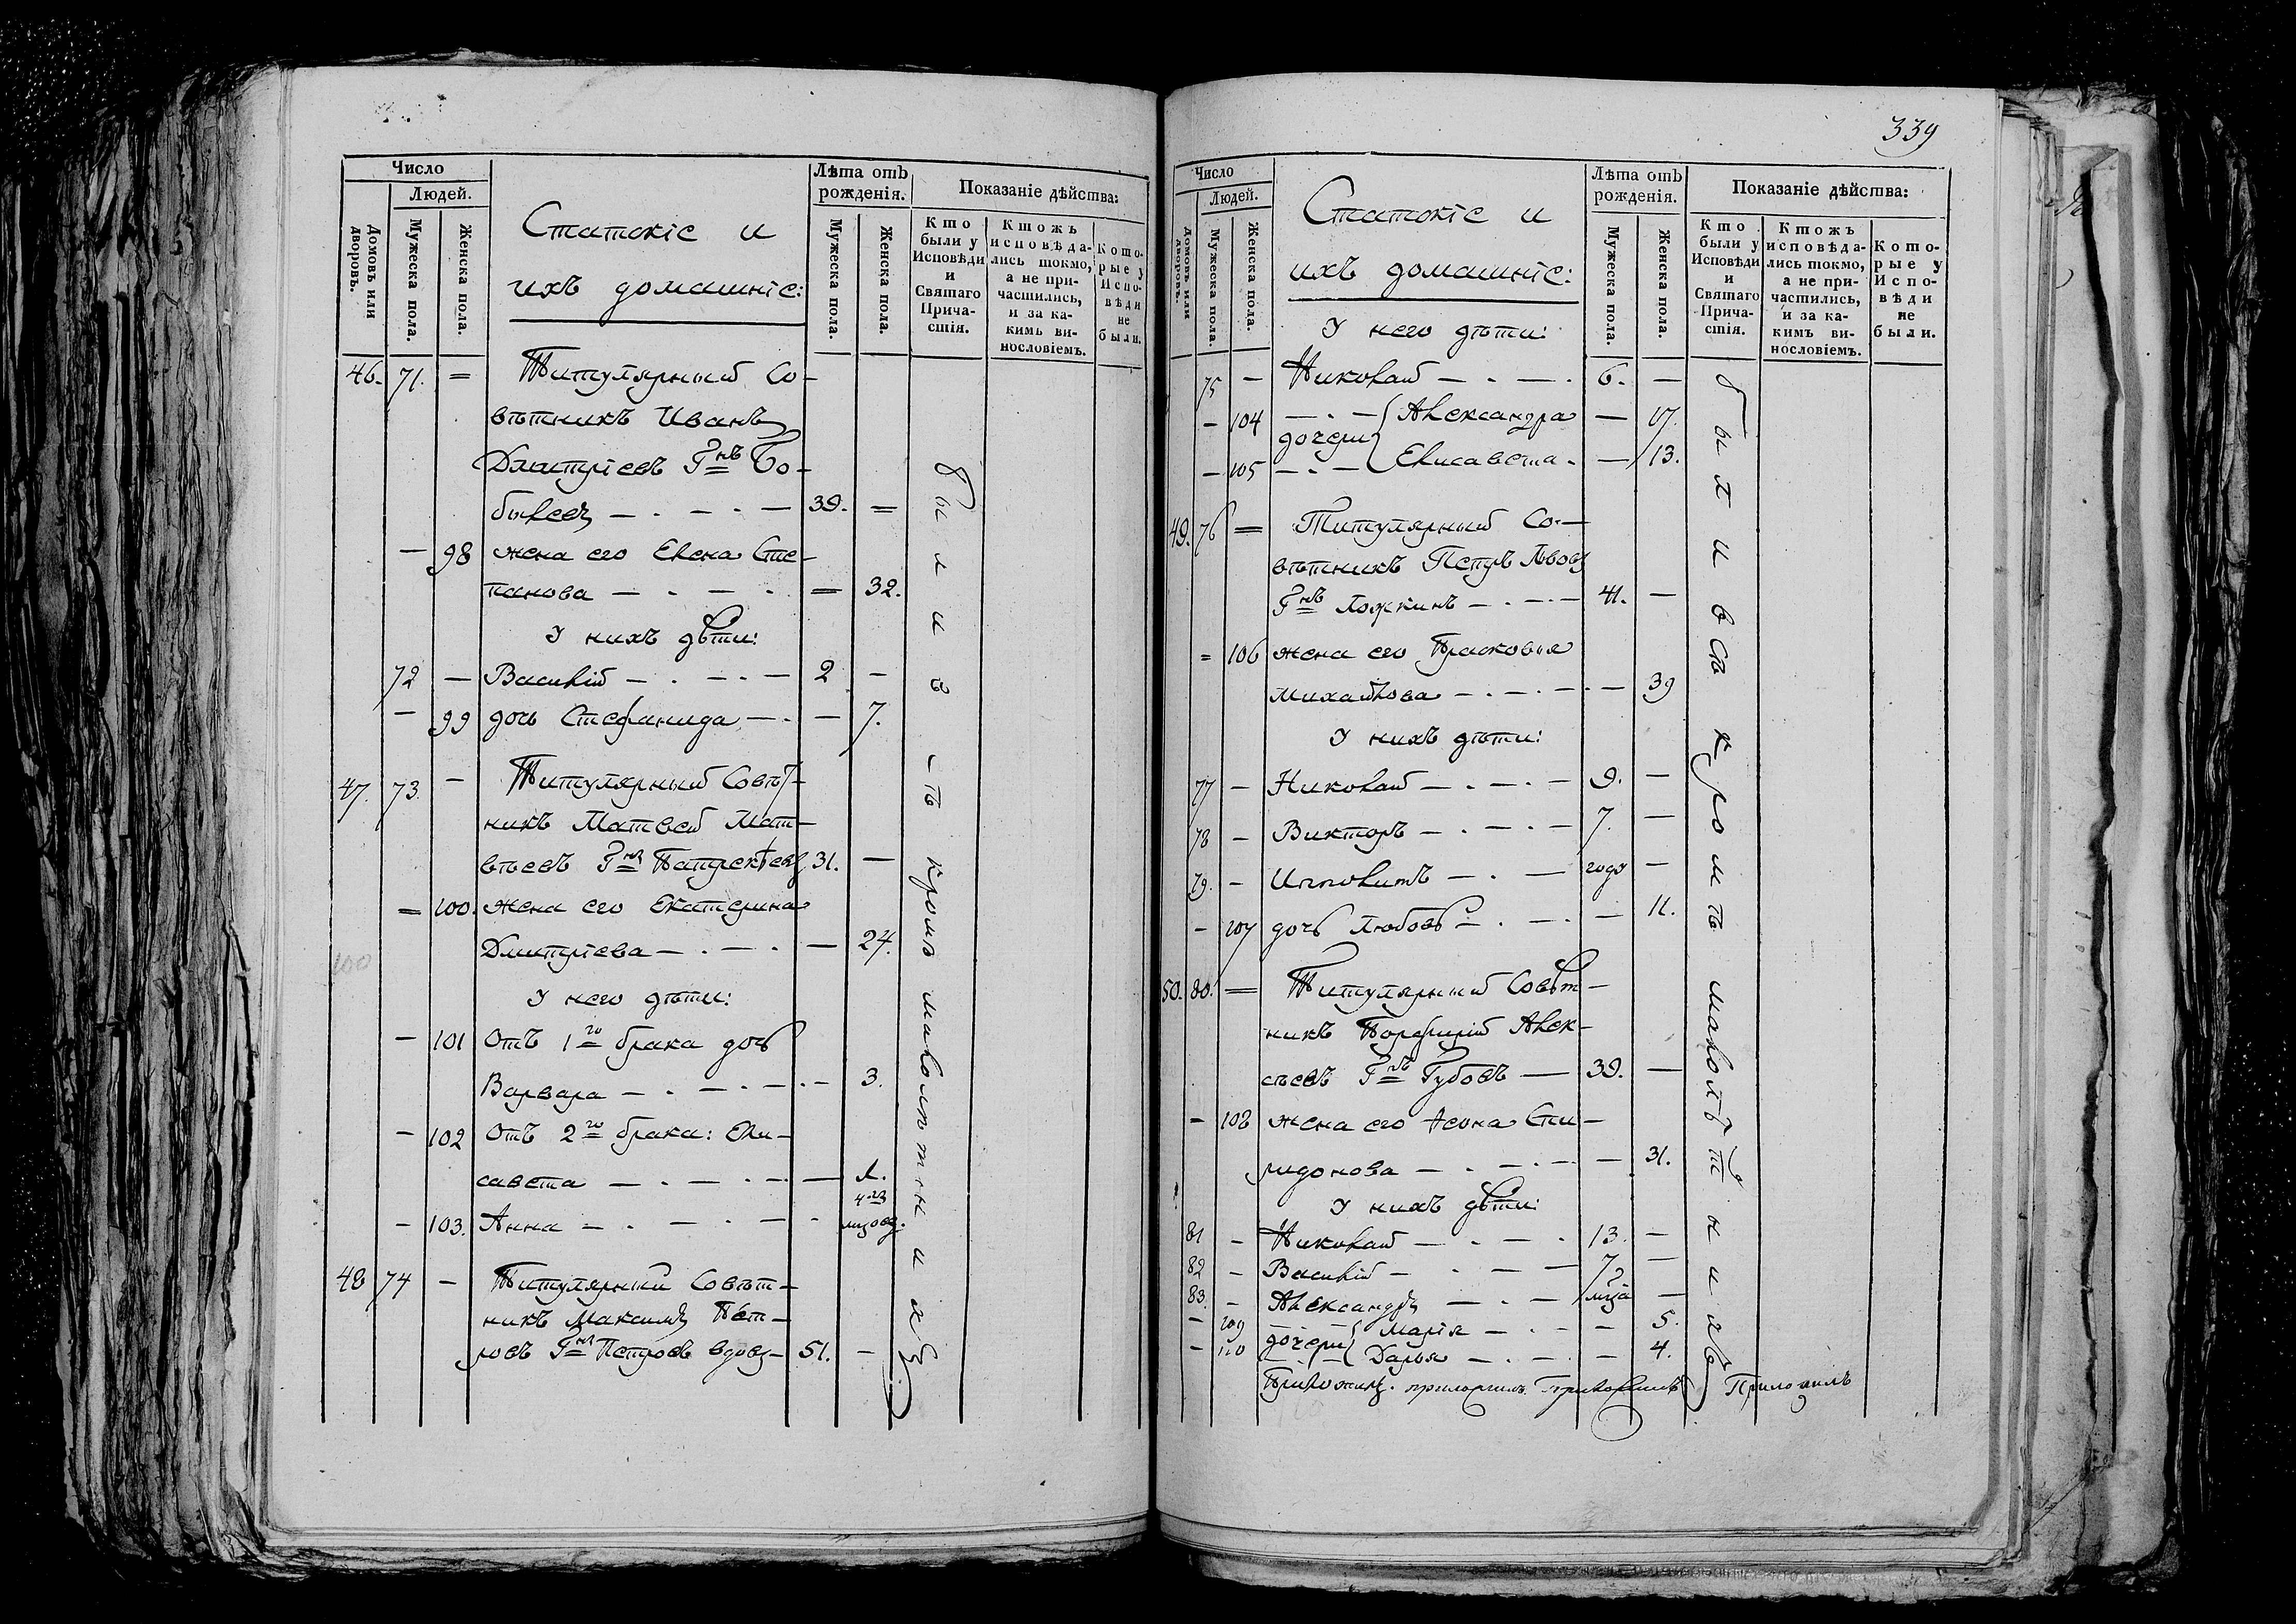 Число
Людей.
Домовъ или дворовъ.
Мужеска пола.
Женска пола.
Статскіе и
ихъ домашніе:
Лѣта отъ рожденія.
Мужеска пола.
Женска пола.
Показаніе дѣйства:
Кто были у Исповѣди и Святаго Прича-стія.
Ктожъ исповѣда-лись токмо, а не при-частились, и за ка-кимъ ви-нословіемъ.
Кото-рые у Испо-вѣди не были.
46. 71. = Титулярный Со-
вѣтникъ Иванъ
Дмитріевъ Гнъ Бо-
былевъ — . — . — 39. =
— 98 жена его Елена Сте-
панова — . — . = 32.
У нихъ дѣти:
72 — Василій — . — . — 2 -
— 99 дочь Стефанида — . — 7.
47. 73. — Титулярный Совѣт-
никъ Матвей Мат-
вѣевъ Гнъ Патрекѣевъ 31. —
= 100. жена его Екатерина
Дмитріева — . — . — 24.
100
У него дѣти:
— 101 Отъ 1го брака дочь
Варвара — . — . — 3.
— 102 Отъ 2го брака: Ели-
савета — . — . — 1.
— 103. Анна — . — . — 4
48 74 — Титулярный Совѣт-
никъ Максимъ Пет-
ровъ Гнъ Петровъ вдовъ — 51. —
были всѣ кромѣ малолѣтнихъ
339
Число
Людей.
Домовъ или дворовъ.
Мужеска пола.
Женска пола.
Статскіе и
ихъ домашніе:
Лѣта отъ рожденія.
Мужеска пола.
Женска пола.
Показаніе дѣйства:
Кто были у Исповѣди и Святаго Прича-стія.
Ктожъ исповѣда-лись токмо, а не при-частились, и за ка-кимъ ви-нословіемъ.
Кото-рые у Испо-вѣди не были.
У него дѣти:
75 — Николай — . — . 6. —
— 104 — . — Александра — 17.
дочери
— 105 — . — Елисавета . — 13.
49. 76 = Титулярный Со-
вѣтникъ Петръ Львовъ
Гнъ Ложкинъ — . — 41. —
= 106 жена его Прасковья
Михайлова — . — . — 39
У нихъ дѣти:
77 — Николай — . — . — 9. —
78 — Викторъ — . — . — 7. —
79. — Ипполитъ — . — году —
— 107 дочь Любовь — . — . — 11.
50. 80. = Титулярный Совѣт-
никъ Порфирій Алек-
сѣевъ Гнъ Губовъ — 39. —
— 108 жена его Ѳеона Спи-
ридонова — . — . — 31.
У нихъ дѣти:
81 — Николай — . — . 13. —
82 — Василій — . — — 7. —
83. — Александръ — . —
— 109 дочери Марія — . — — 5.
— 110 Дарья — . — — 4.
были всѣ кромѣ малолѣтнихъ